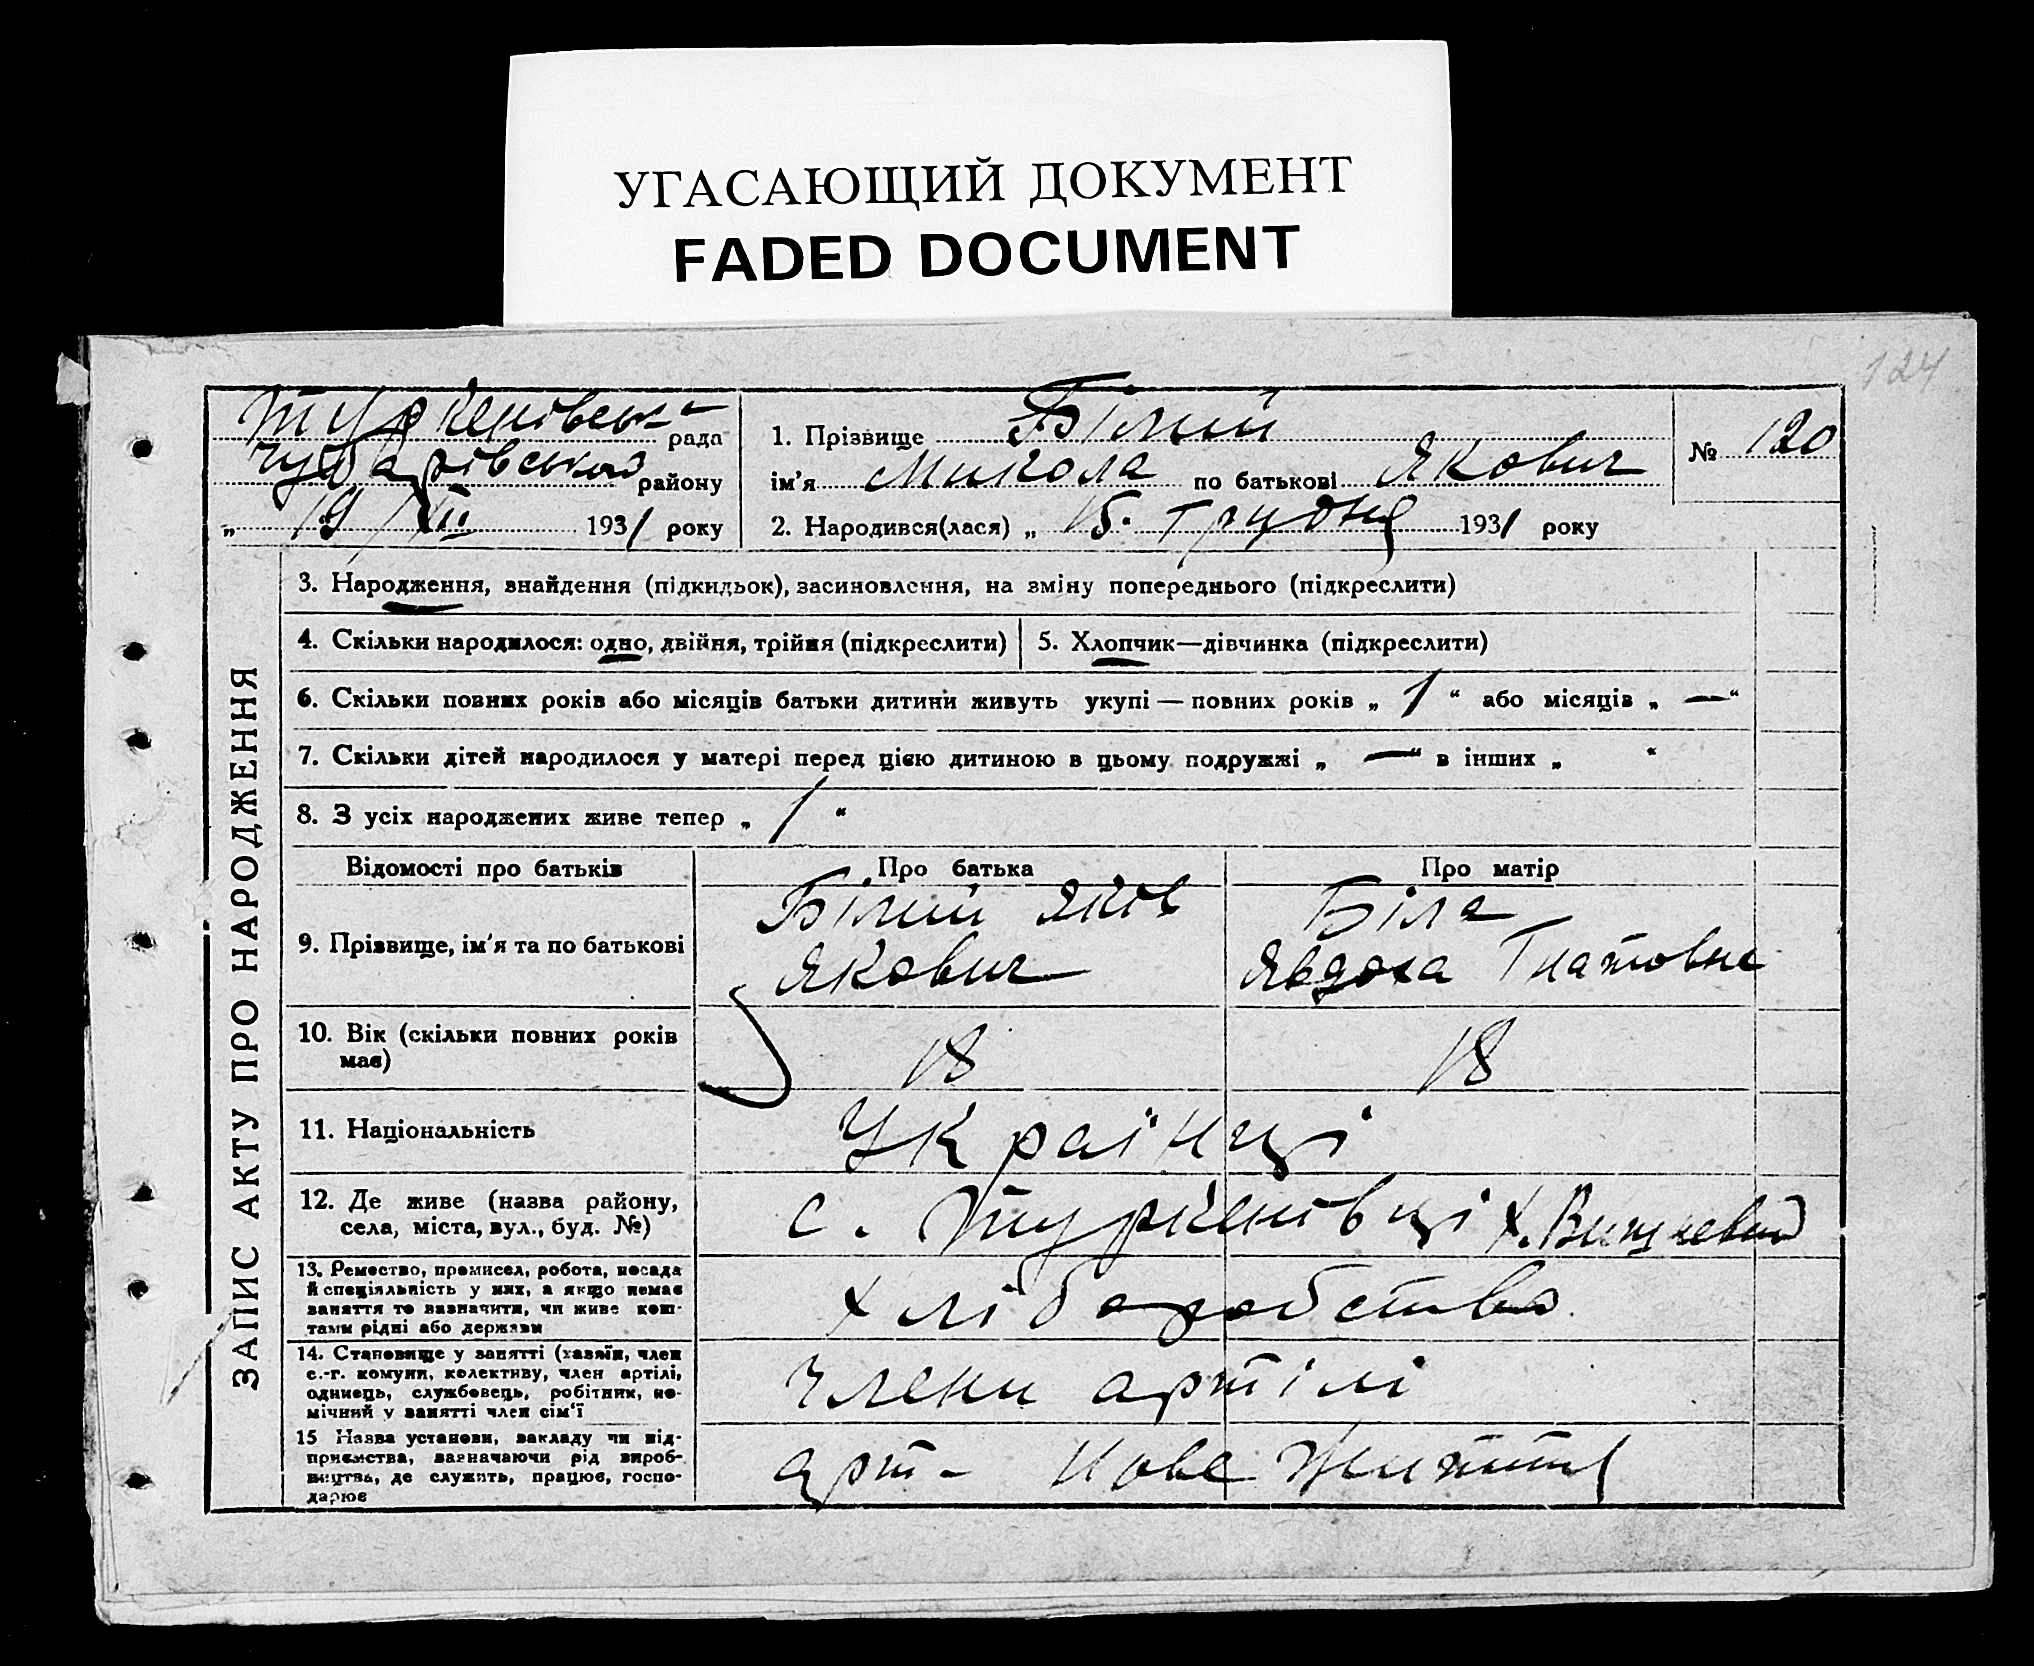 УГАСАЮЩИЙ ДОКУМЕНТ
FADED DOCUMENT
124
Туркенівська рада
Чубарівський району
„ 19/XII 1931 року
1. Прізвище Білий
ім'я Микола по батькові Якович
2. Народився(лася) „ 15. Грудня 1931 року
№ 120
ЗАПИС АКТУ ПРО НАРОДЖЕННЯ
3. Народження, знайдення (підкидьок), засиновлення, на зміну попереднього (підкреслити)
4. Скільки народилося: одно, двійня, трійня (підкреслити)
5. Хлопчик—дівчинка (підкреслити)
6. Скільки повних років або місяців батьки дитини живуть укупі — повних років „ 1 “ або місяців „ — “
7. Скільки дітей народилося у матері перед цією дитиною в цьому подружжі „ — “ в інших „ “
8. З усіх народжених живе тепер „ 1 “
Відомості про батьків Про батька Про матір
9. Прізвище, ім'я та по батькові
Білий Яків
Якович
Біла
Явдоха Гнатовна
10. Вік (скільки повних років
має)
18 18
11. Національність
Українці
12. Де живе (назва району,
села, міста, вул., буд. №)
с. Туркенівці х. Вишневий
13. Ремество, промисел, робота, посада
й спеціяльність у них, а якщо немає
заняття то вазначити, чи живе кош-
тами рідні або держави
Хліборобство
14. Становище у занятті (хазяїн, член
с.-г. комуни, колективу, член артілі,
одинець, службовець, робітник, по-
мічний у занятті член сім'ї
члени артілі
15 Назва установи, закладу чи під-
приємства, вазначаючи рід вироб-
ництва, де служить, працює, госпо-
дарює
арт- Нове Життя